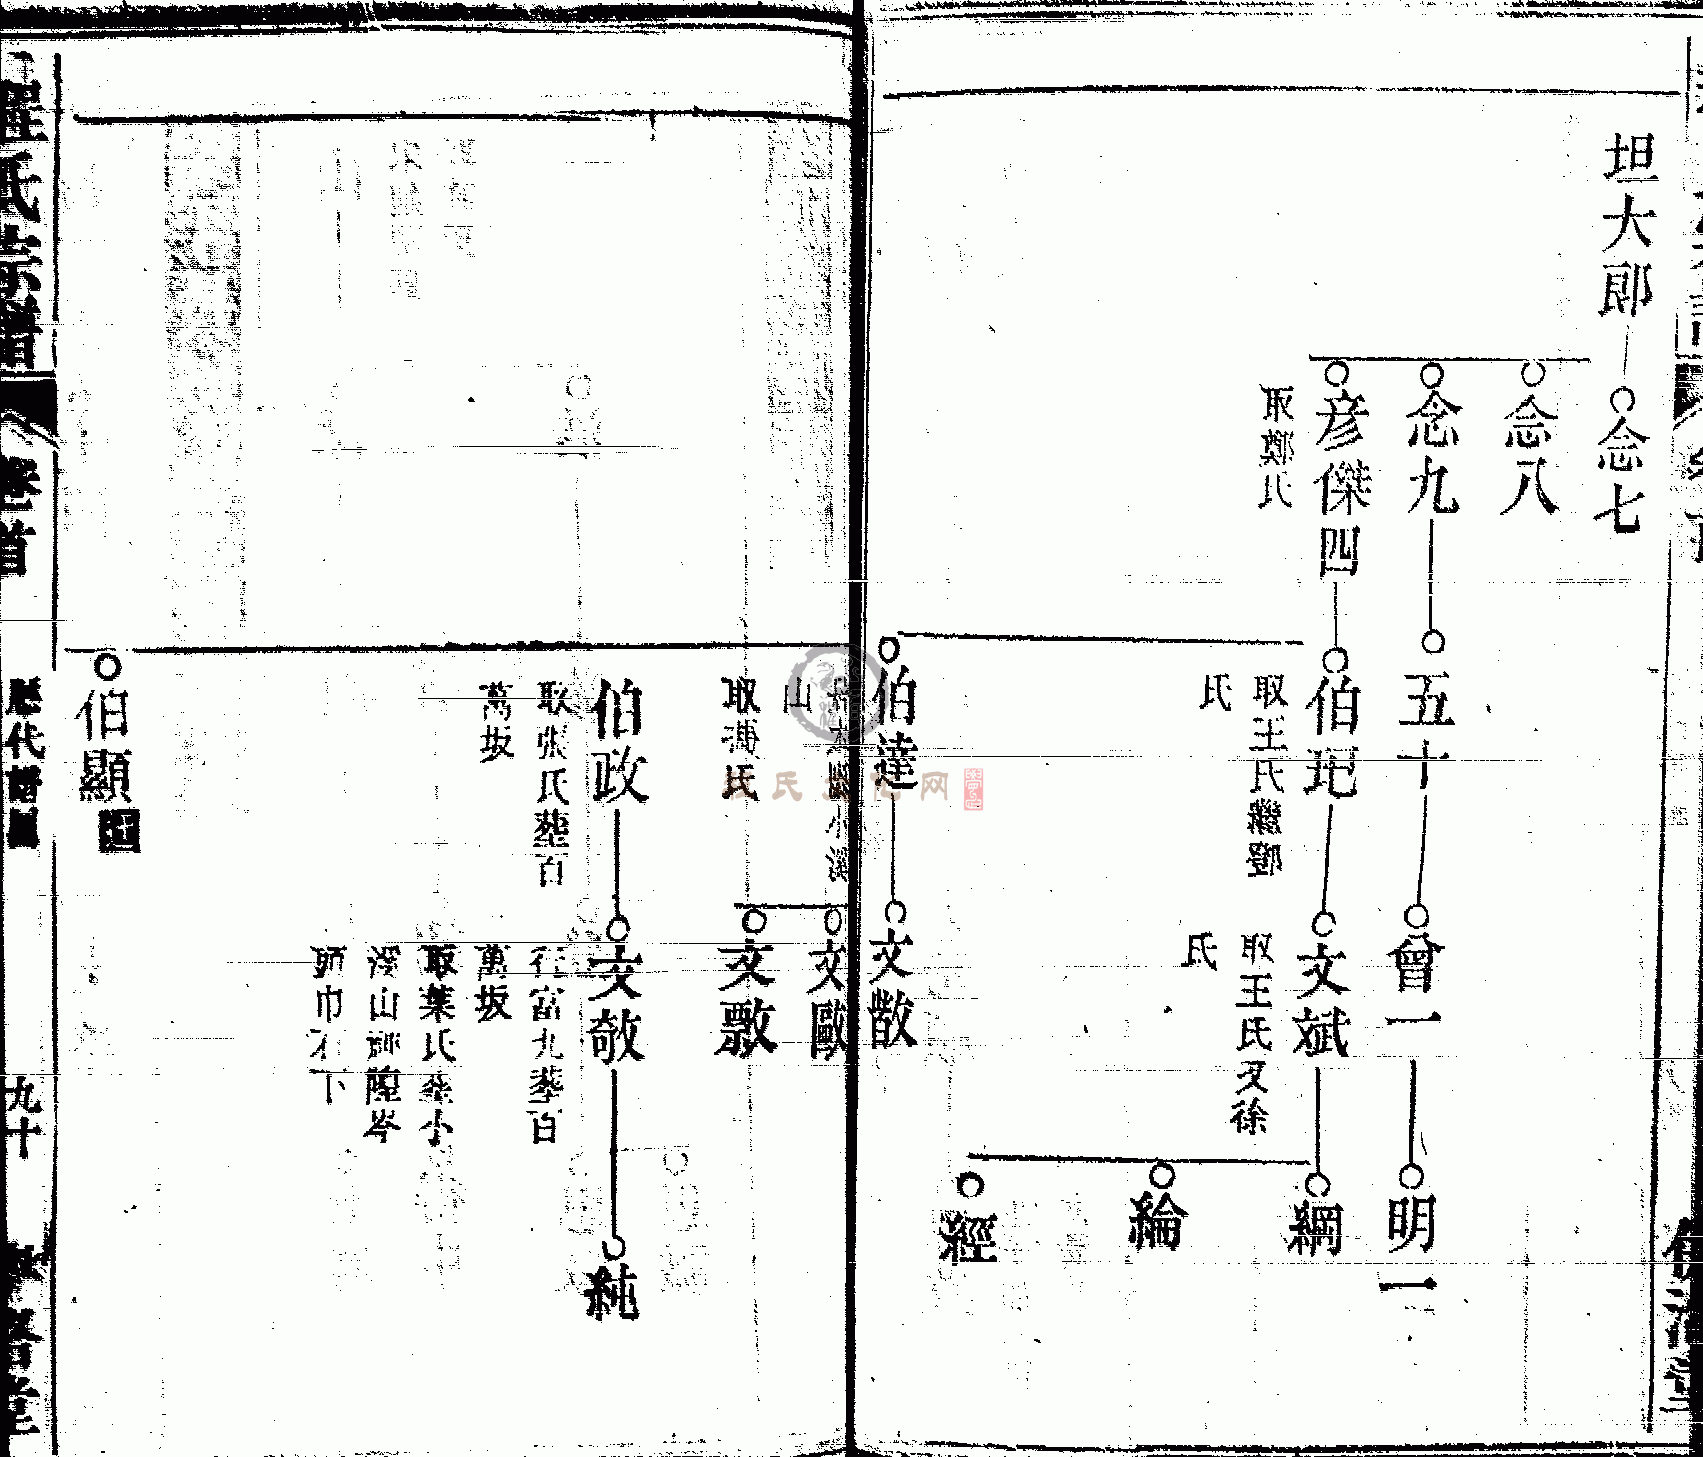 坦大郎
念七
念八
念九
五十
曾一
明一
彦傑四
取鄭氏
伯玘
取王氏繼鄧
氏
文斌
取王氏又徐
氏
綱
綸
經
伯達
小溪
山
取
氏
文歐
伯政
取張氏葬百
萬坂
文敬
行富九葬百
萬坂
取葉氏葬小
溪山
頭巾石下
純
伯顯
氏宗譜
卷首
歷代譜圖
九十